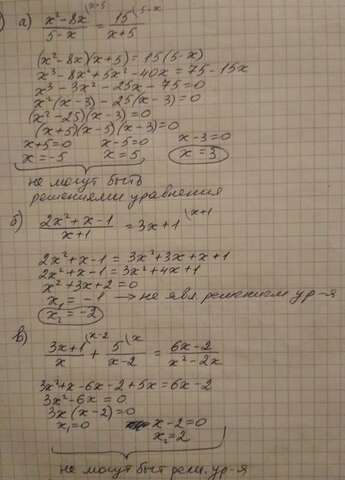 а) (x²-8x)/(5-x) \x+5 = 15/(x+5) \5-x
(x²-8x)(x+5)=15(5-x)
x³-8x²+5x²-40x=75-15x
x³-3x²-25x-75=0
x²(x-3)-25(x-3)=0
(x²-25)(x-3)=0
(x+5)(x-5)(x-3)=0
x+5=0 x-5=0 x-3=0
x=-5 x=5 x=3
не могут быть
решениями уравнения
б) (2x²+x-1)/(x+1) = 3x+1 \x+1
2x²+x-1=3x²+3x+x+1
2x²+x-1=3x²+4x+1
x²+3x+2=0
x₁=-1 → не явл. решением ур-я
x₂=-2
в) (3x+1)/x \x-2 + 5/(x-2) \x = (6x-2)/(x²-2x)
3x²+x-6x-2+5x=6x-2
3x²-6x=0
3x(x-2)=0
x₁=0 x-2=0
x₂=2
не могут быт реш. ур-я